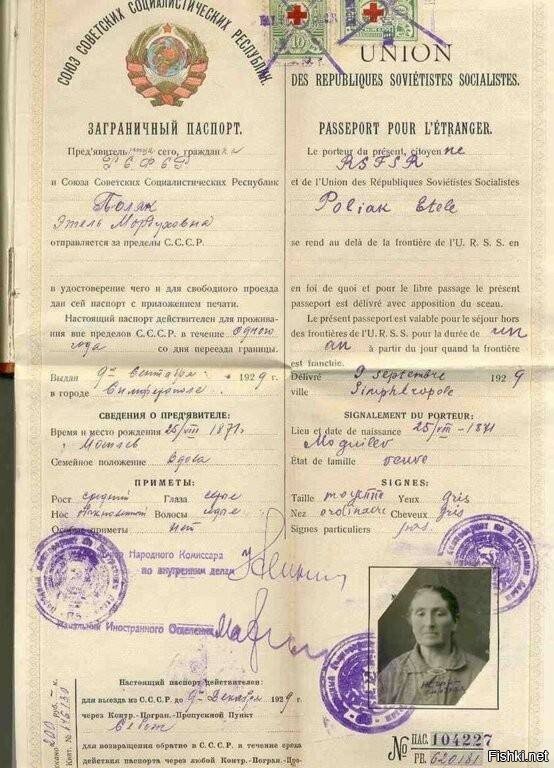 СОЮЗ СОВЕТСКИХ СОЦИАЛИСТИЧЕСКИХ РЕСПУБЛИК.
ЗАГРАНИЧНЫЙ ПАСПОРТ.
Пред'явитель сего, граждан ка
РСФСР
и Союза Советских Социалистических Республик
Поляк
Этель Мордуховна
отправляется за пределы С.С.С.Р.
в удостоверение чего и для свободного проезда
дан сей паспорт с приложением печати.
Настоящий паспорт действителен для прожива-
ния вне пределов С.С.С.Р. в течение одного
года со дня переезда границы.
Выдан 9го Сентября 1929 г.
в городе Симферополе
СВЕДЕНИЯ О ПРЕД'ЯВИТЕЛЕ:
Время и место рождения 25/VIII 1871г.
Могилев
Семейное положение вдова
ПРИМЕТЫ:
Рост средний Глаза серые
Нос Волосы серые
Особые приметы нет
Народного Комиссара
по внутренним делам
Начальник Иностранного Отделения
Настоящий паспорт действителен:
для выезда из С.С.С.Р. до 9го Декабря 1929 г.
через Контр.-Погран.-Пропускной Пункт
для возвращения обратно в С.С.С.Р. в течение срока
действия паспорта через любой Контр.-Погран.-Про-
10
UNION
DES REPUBLIQUES SOVIÉTISTES SOCIALISTES.
PASSEPORT POUR L'ÉTRANGER.
Le porteur du présent, citoyen ne
RSFSR
et de l'Union des Républiques Soviétistes Socialistes
Poliak Etele
se rend au delà de la frontière de l'U. R. S. S. en
en foi de quoi et pour le libre passage le présent
passeport est délivré avec apposition du sceau.
Le présent passeport est valable pour le séjour hors
des frontières de l'U. R. S. S. pour la durée de un
an à partir du jour quand la frontière
est franchie.
Délivré 9 septembre 1929
ville Simphéropole
SIGNALEMENT DU PORTEUR:
Lieu et date de naissance 25/VIII - 1871
Moguilev
État de famille veuve
SIGNES:
Taille moyenne Yeux gris
Nez ordinaire Cheveux gris
Signes particuliers pas.
№ ПАС. 104227
FB. 620181
Fishki.net